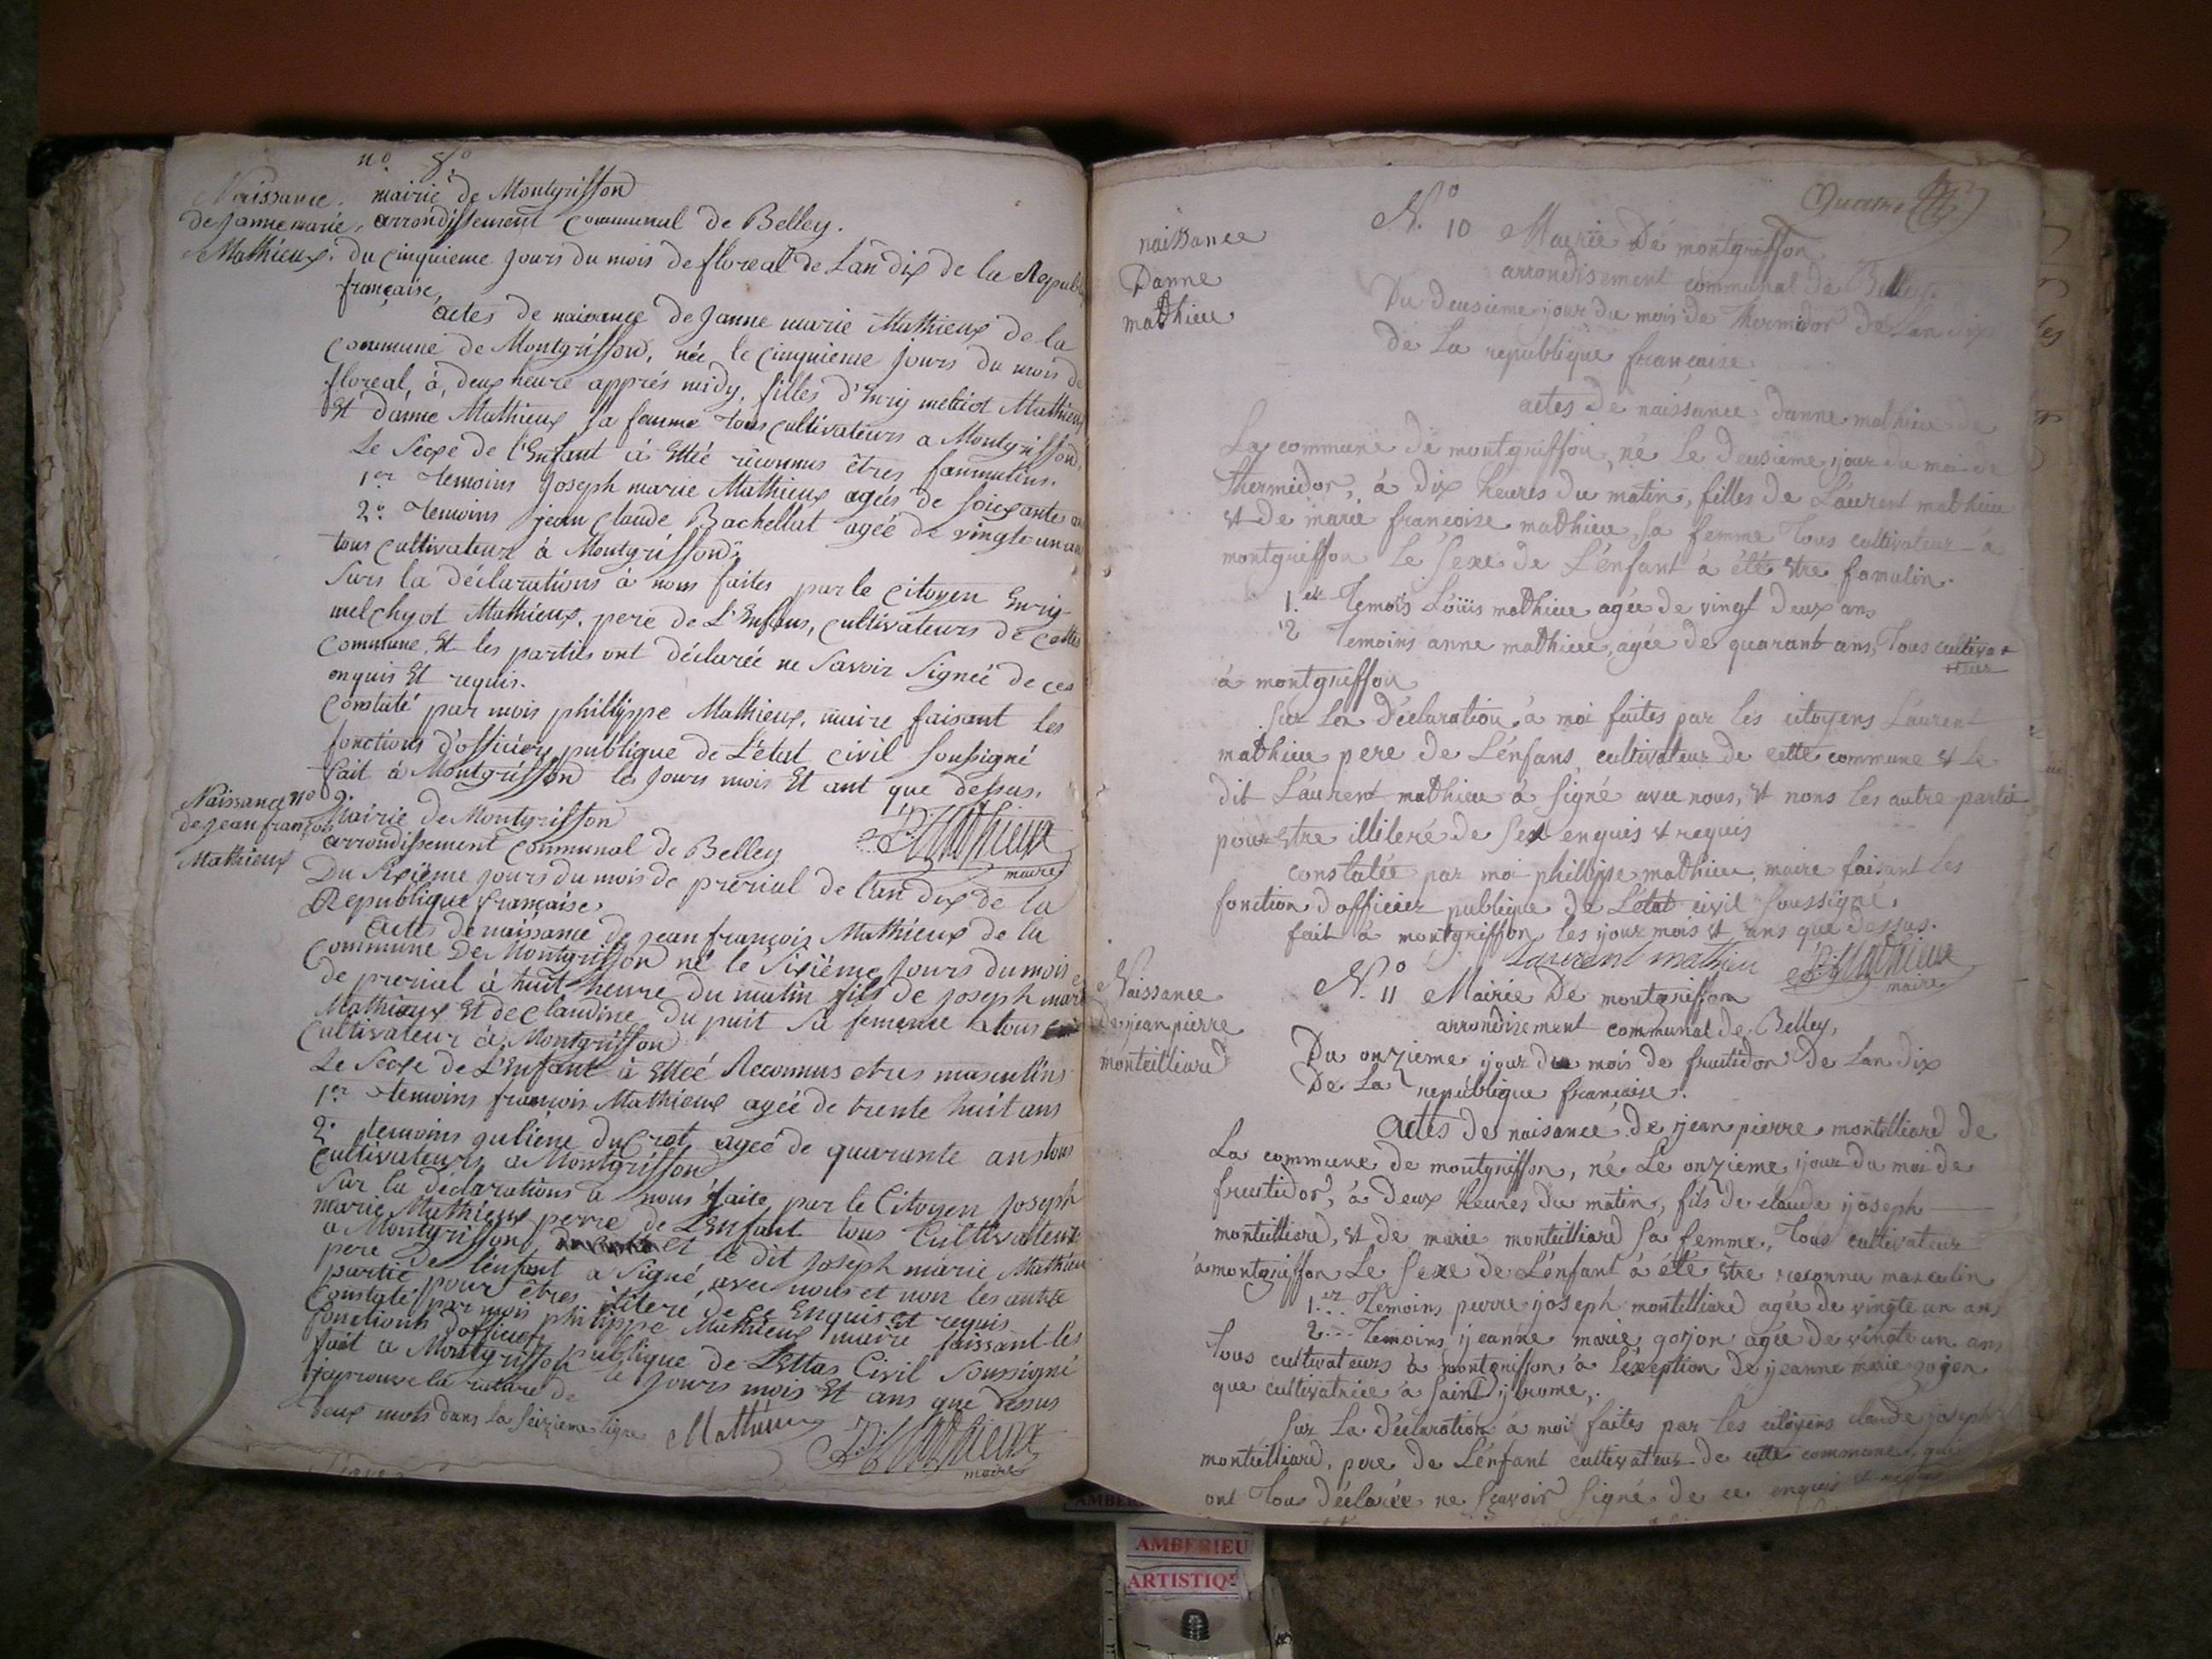 n.º 8.º
Naissance.
de Janne marie,
Mathieux.
mairie de Montgriffon
arrondissement Communal de Belley.
du cinquieme Jours du mois de floreal de Lan dix de la Republ
française,
actes de naisance de Janne marie Mathieux de la
Commune de Montgriffon, née le cinquieme jours du mois de
floreal, à, deux heure apprés midy, filles d'Enry melciot Mathieux
Et danne Mathieux sa femme tous cultivateurs a Montgriffon,
Le Sexe de l'Enfant à Ettéé réconnus êtres fammulins.
1er temoins Joseph marie Mathieux agées de soixante an
2º temoins jean Claude Bachellat agée de vingte un an
tous Cultivateur à Montgriffond
Surs la déclarations à nous faites par le Citoyen Enriy
melchyot Mathieux, pere de L'Enfans, Cultivateurs de cette
Commune, Et les parties ont déclarée ne Savoir Signéé de ces
enquis Et requis.
Constaté par mois phillippe Mathieux, maire faisant les
fonctions d'officiery publique de L'état civil soussigné
fait à Montgriffon les Jours mois Et ant que dessus.
P. Mathieux
maire
Naissance nº 9.
de Jean françois
Mathieux
Mairie de Montgriffon
arrondissement Communal de Belley
Du Sixième Jours du mois de prerial de l'an dix de la
République française
Actes de naissance de jean françois Mathieux de la
Commune De Montgriffon né le Sixiéme Jours du mois
de prerial à huit heure du matin fils de Joseph marie
Mathieux Et de Claudine du puit Sa fememe tous
Cultivateur à Montgriffon
Le Sexe de L'Enfant à Ettéé Reconnus etres masculins
1er temoins françois Mathieux agéé de trente huit ans
2º temoins guliéne du Crot, ageé de quarante ans tous
Cultivateurs a Montgriffon
Sur la déclarations a nous faite par le Citoyen Joseph
marie Mathieux perre de L'Enfant tous Cultivateur
a Montgriffon et le dit Joseph marie Mathieu
pere de l'énfant a Signé avec nous et non les autre
partie pour êtres iliteré de ce Enquis et requis
Constaté par mois philippe Mathieux maire faissant les
fonctions d'officier publique de L'ettas Civil Soussigné
fait a Montgriffon le jours mois Et ans que dessus
japrouve la rature de
deux mots dans la seizieme ligne
Mathieux
P. Mathieux
maire
naissance
Danne
mathieu
N.º 10 Mairie De montgriffon
arrondisement communal de Belley.
Du deusieme jour du mois de thermidor de Lan dix
de La republique francaise
actes de naissance danne mathieu de
La commune de montgriffon, né Le deusieme jour du moi de
thermidor, à dix heures du matin, filles de Laurent mathieu
et de marie francoise mathieu, sa femme tous cultivateur a
montgriffon Le Sexe de L'énfant à été etre famulin.
1.er Temois Loüis mathieu agée de vingt deux ans
2 Temoins anne mathieu, agée de quarant ans, tous cultiva
teur
à montgriffon
Sur La déclaration à moi faites par les citoyens Laurent
mathieu pere de L'énfans, cultivateur de cette commune et Le
dit Laurent mathieu à signé avec nous, et nons les autre partie
pour etre illiteré de Ses enquis et requis
constatée par moi philippe mathieu, maire faisant les
fonction d'officier publique de L'état civil soussigné,
fait à montgriffon les jour mois et ans que dessus.
Laurent mathieu P. Mathieux
maire
Naissance
De jean pierre
monteilliard
N.º 11 Mairie De montgriffon
arrondisement communal de Belley,
Du onzieme jour du mois de fructidor de Lan dix
De La république francaise.
Actes de naisance de jean pierre montelliard de
La commune de montgriffon, né Le onzieme jour du moi de
fructidor, à deux heures du matin, fils de claude joseph
monteilliard, et de marie monteilliard sa femme, tous cultivateur
à montgriffon Le Sexe de L'énfant à été être reconnu masculin
1.er Temoins pierre joseph montelliard agée de vingte un ans
2... Temoins jeanne marie gojon agée de vingte un ans
tous cultivateurs à montgriffon, à L'éxeption de jeanne marie gojon
que cultivatrice à saint jerome,.
Sur La déclaration à moi faites par les citoyens claude joseph
monteilliard, pere de L'énfant cultivateur de cette commune, qui
ont tous déclarée ne sçavoir signé de ce enquis et requis
AMBERIEU
ARTISTIQUE